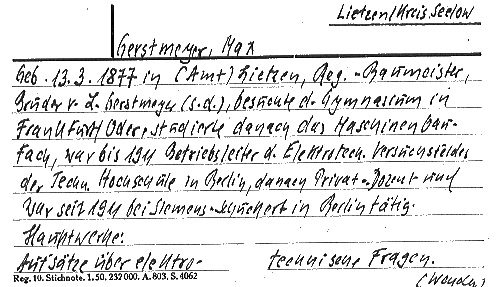 Lietzen/Kreis Seelow
Gerstmeyer, Max
Geb. 13.3.1877 in (Amt) Lietzen, Reg.-Baumeister,
Bruder v. L. Gerstmeyer (s.d.), besuchte d. Gymnasium in
Frankfurt/Oder, studierte danach das Maschinenbau-
fach, war bis 1911 Betriebsleiter d. Elektrotech. Versuchsfeldes
der Techn. Hochschule in Berlin, danach Privat-Dozent und
war seit 1911 bei Siemens-Schuckert in Berlin tätig.
Hauptwerke:
Aufsätze über elektro- technische Fragen.
Reg. 10. Stichnote. 1.50, 232000. A. 803, S. 4062